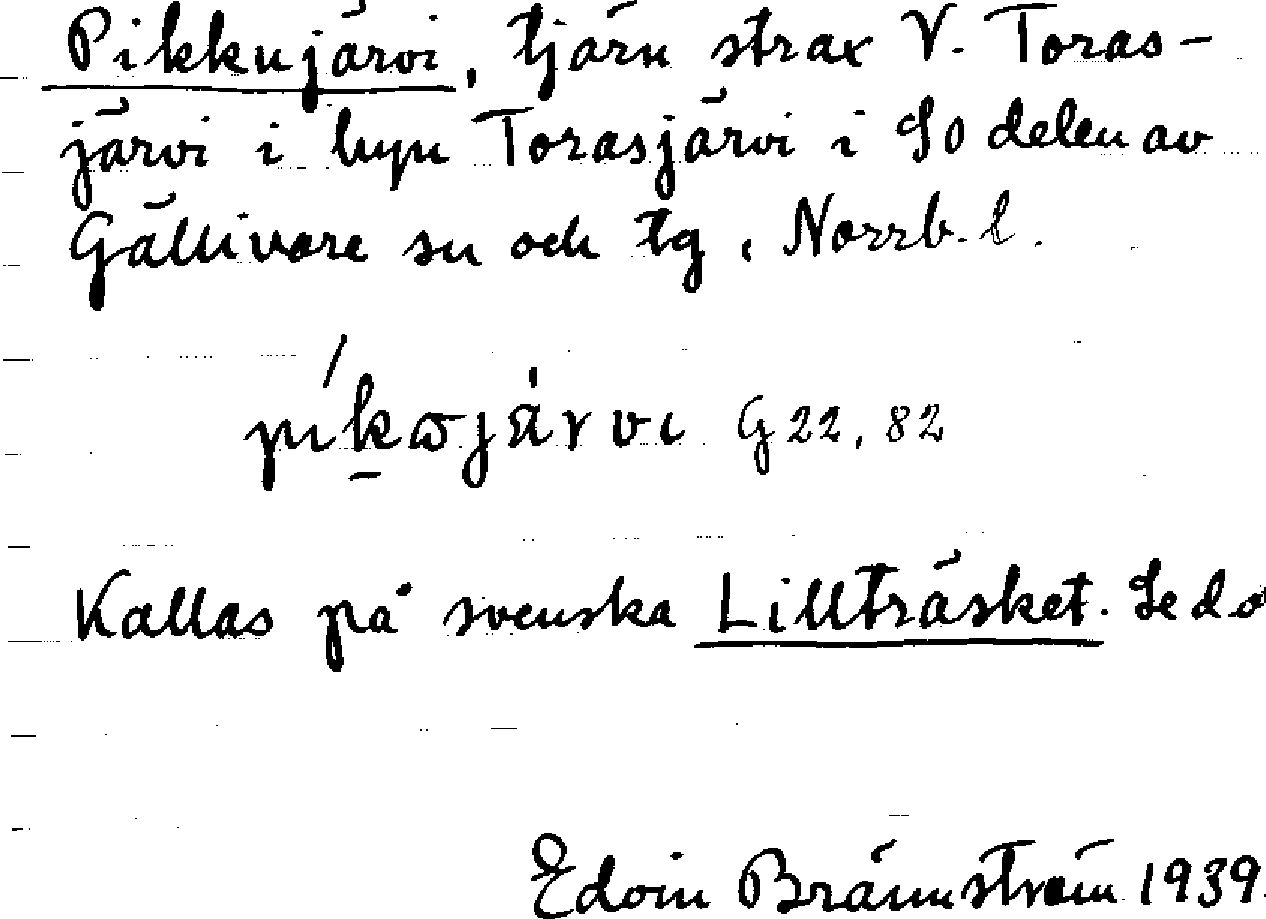 Pikkujärvi, tjärn strax V. Toras-
järvi i byn Torasjärvi i SO delen av
Gällivare sn och tg, Norrb. l.
G 22, 82
Kallas på svenska Lillträsket. Se d o
Edvin Brännström 1939.